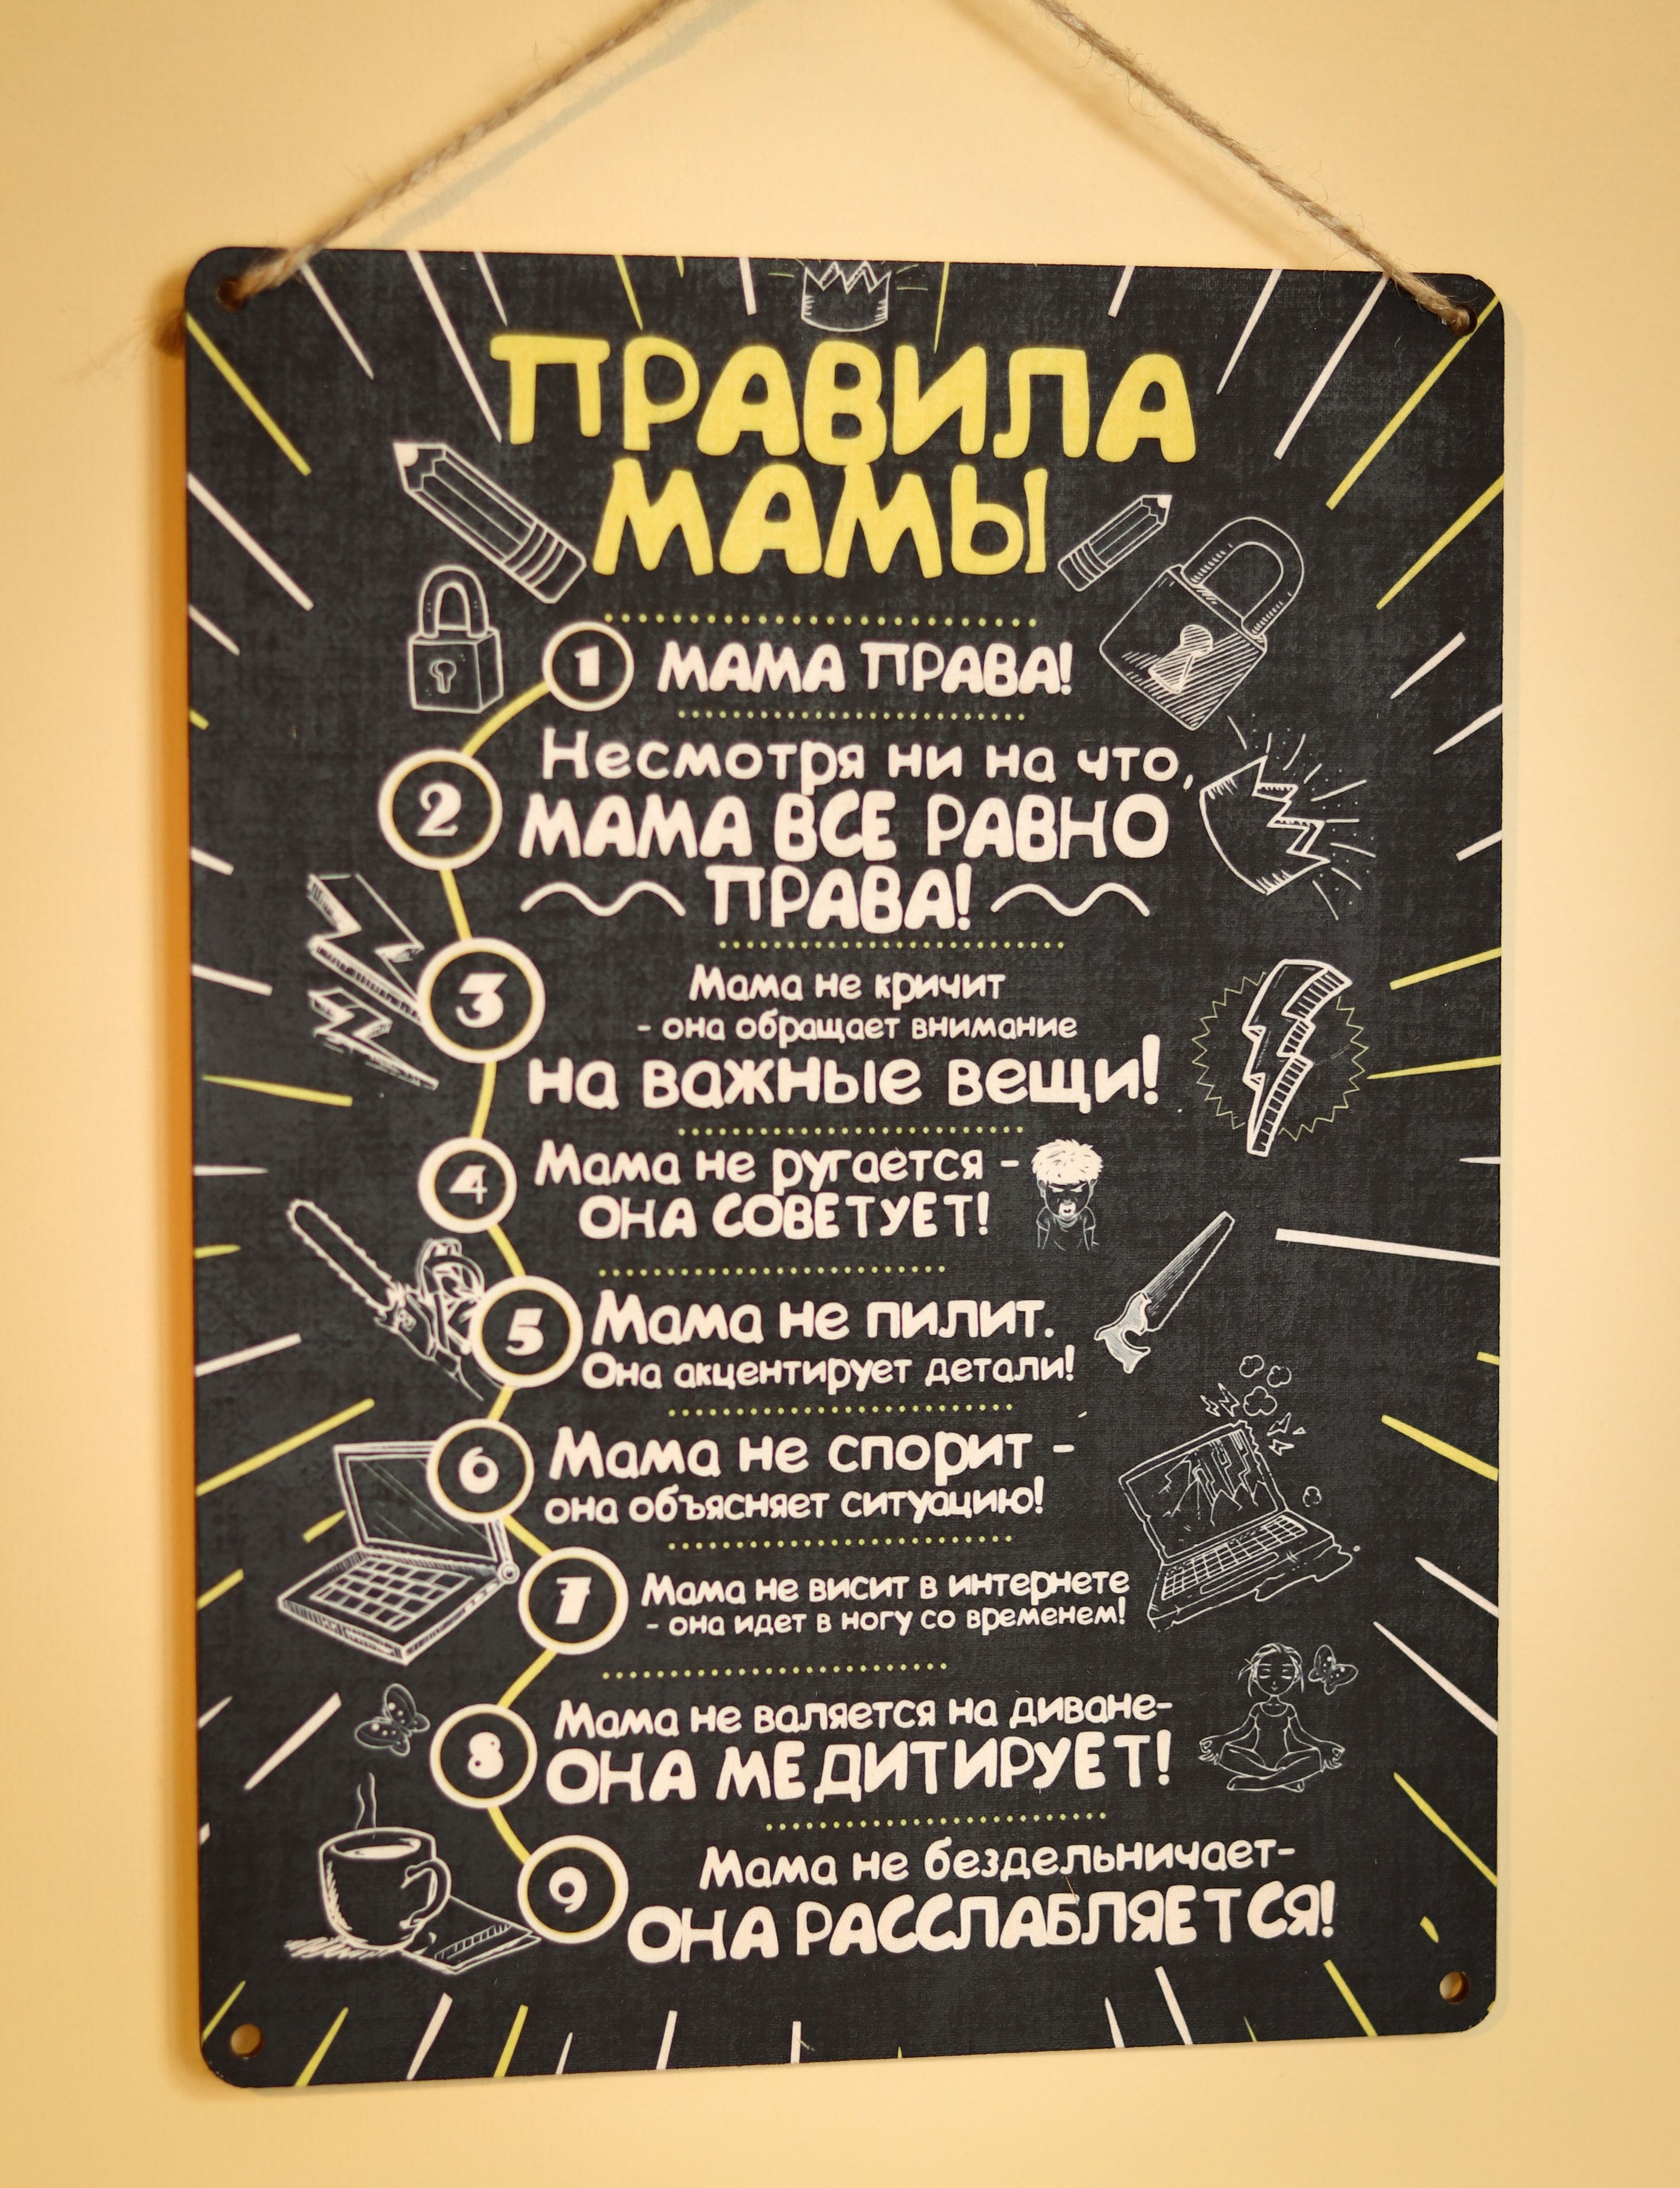 ПРАВИЛА
МАМЫ
1 МАМА ПРАВА!
Несмотря ни на что,
2 МАМА ВСЕ РАВНО
ПРАВА!
Мама не кричит
3 - она обращает внимание
на важные вещи!
4 Мама не ругается -
ОНА СОВЕТУЕТ!
5 Мама не пилит.
Она акцентирует детали!
6 Мама не спорит -
она объясняет ситуацию!
7 Мама не висит в интернете
- она идет в ногу со временем!
Мама не валяется на диване-
8 ОНА МЕДИТИРУЕТ!
Мама не бездельничает-
9 ОНА РАССЛАБЛЯЕТСЯ!